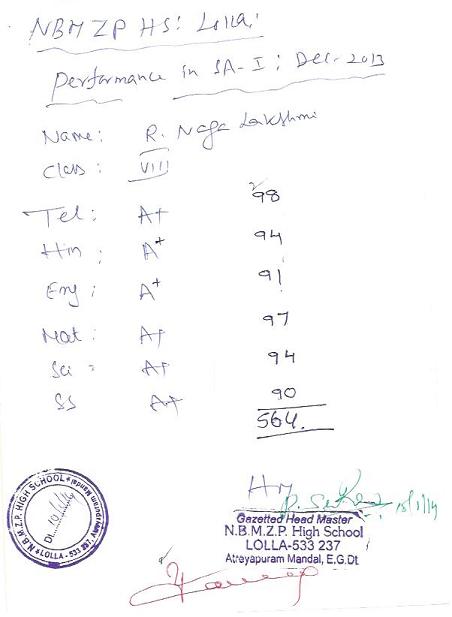 NBMZP HS: Lolla:
Performance in SA-I; Dec-2013
Name: R. Naga Lakshmi
Class: VIII
Tel: A+ 98
Hin: A+ 94
Eng: A+ 91
Mat: A+ 97
Sci: A+ 94
SS A+ 90
564.
N.B.M.Z.P. HIGH SCHOOL
LOLLA - 533 237
Dt.
HM
Gazetted Head Master
N.B.M.Z.P. High School
LOLLA-533 237
Atreyapuram Mandal, E.G.Dt